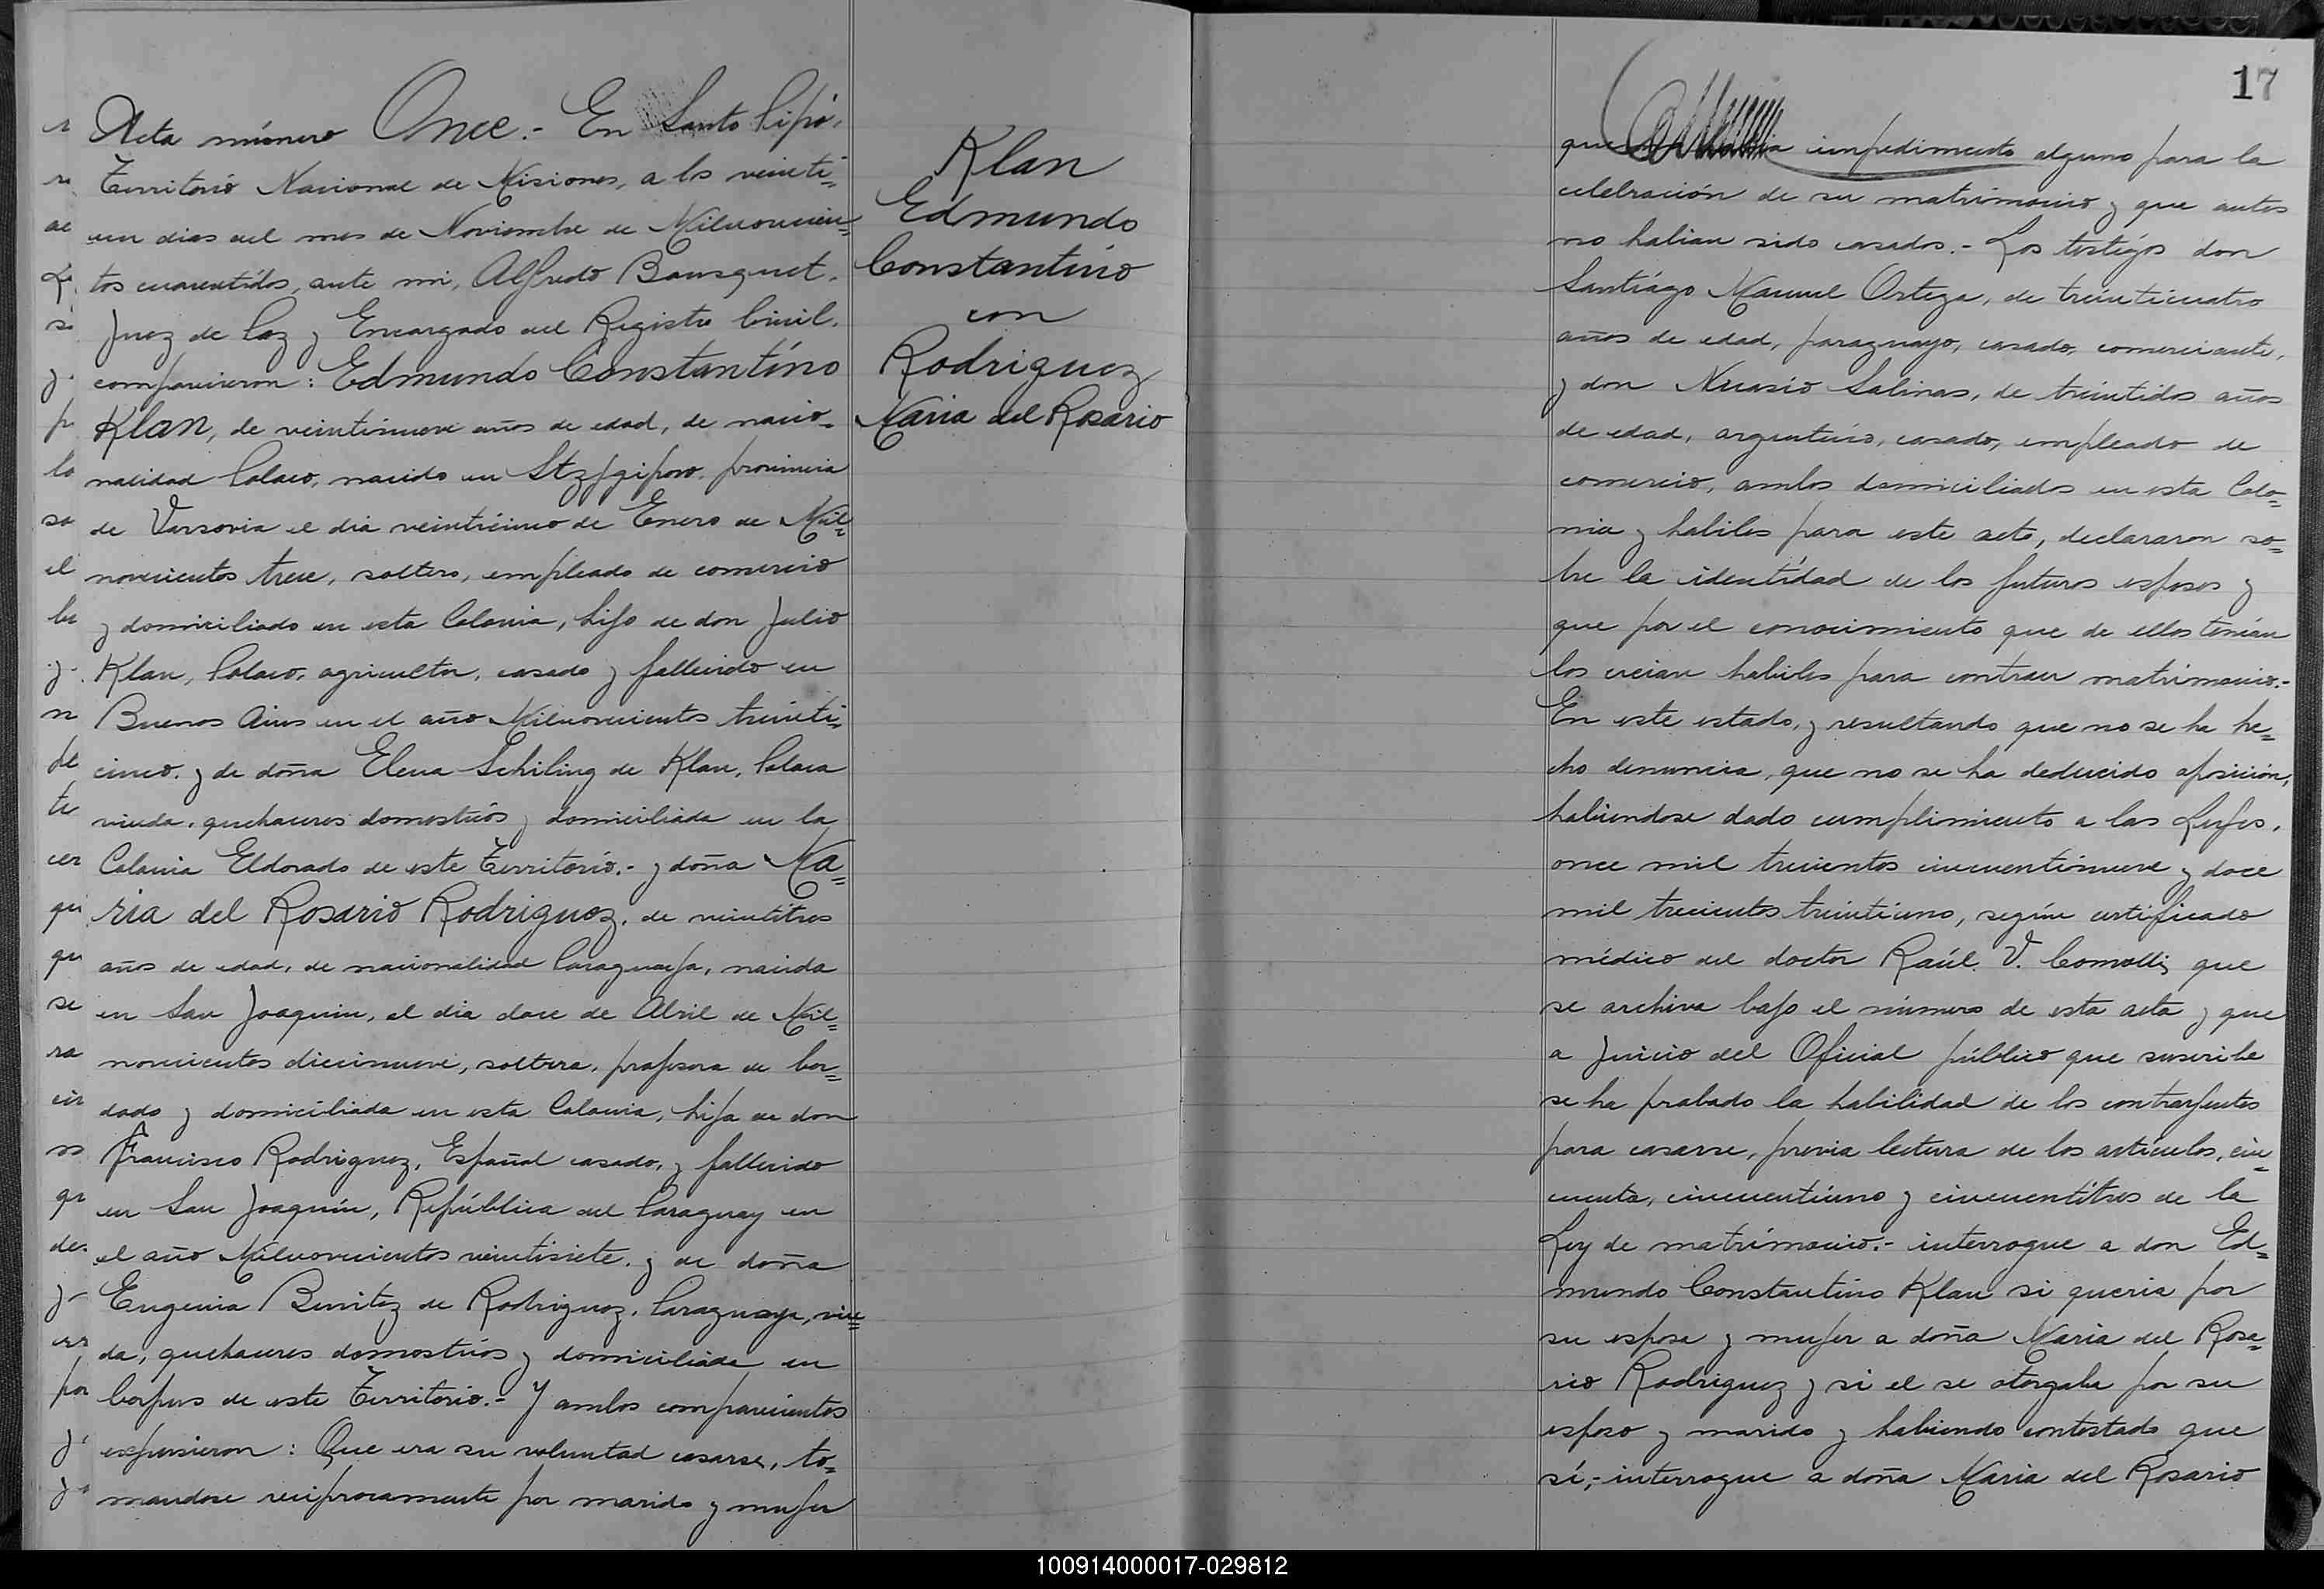 Acta número Once.- En Santo Pipó,
Territorio Nacional de Misiones, a los veinti=
un dias del mes de Noviembre de Milnovecien=
tos cuarentidos, ante mi, Alfredo Bousquet,
Juez de Paz y Encargado del Registro Civil,
comparecieron: Edmundo Constantino
Klan, de veintinueve años de edad, de nacio=
nalidad Polaco, nacido en provincia
de Varsovia el dia veinticinco de Enero de Mil=
novecientos trece, soltero, empleado de comercio
y domiciliado en esta Colonia, hijo de don Julio
Klan, Polaco, agricultor, casado y fallecido en
Buenos Aires en el año Milnovecientos treinti=
cinco, y de doña Elena Schiling de Klan, Polaca
viuda, quehaceres domesticos y domiciliada en la
Colonia Eldorado de este Territorio.- y doña Ma=
ria del Rosario Rodriguez, de veintitres
años de edad, de nacionalidad Paraguaya, nacida
en San Joaquin, el dia doce de Abril de Mil=
novecientos diecinueve, soltera, profesora de bor=
dado y domiciliada en esta Colonia, hija de don
Francisco Rodriguez, Español casado, y fallecido
en San Joaquín, República del Paraguay en
el año Milnovecientos veintisiete, y de doña
Eugenia Benitez de Rodriguez, Paraguaya, viu=
da, quehaceres domesticos y domiciliada en
Corpus de este Territorio.- Y ambos comparecientes
expusieron: Que era su voluntad casarse, to=
mandose reciprocamente por marido y mujer
Klan
Edmundo
Constantino
con
Rodriguez
Maria del Rosario
17
que impedimento alguno para la
celebración de su matrimonio y que antes
no habian sido casados.- Los testigos don
Santiágo Manuel Ortega, de treinticuatro
años de edad, paraguayo, casado, comerciante,
y don Nicasio Salinas, de treintidos años
de edad, argentino, casado, empleado de
comercio, ambos domiciliados en esta Colo=
nia y habiles para este acto, declararon so=
bre la identidad de los futuros esposos y
que por el conocimiento que de ellos tenían
los creian habiles para contraer matrimonio.-
En este estado, y resultando que no se ha he=
cho denuncia, que no se ha deducido oposición,
habiendose dado cumplimiento a las Leyes,
once mil trecientos cincuentinueve y doce
mil trecientos treintiuno, según certificado
médico del doctor Raúl V. Comolli, que
se archiva bajo el número de esta acta y que
a juicio del Oficial público que suscribe
se ha probado la habilidad de los contrayentes
para casarse, previa lectura de los artículos, cin=
cuenta, cincuentiuno y cincuentitres de la
Ley de matrimonio.- interrogue a don Ed=
mundo Constantino Klan si queria por
su esposa y mujer a doña Maria del Rosa=
rio Rodriguez y si el se otorgaba por su
esposo y marido y habiendo contestado que
sí,- interrogue a doña Maria del Rosario
100914000017-029812